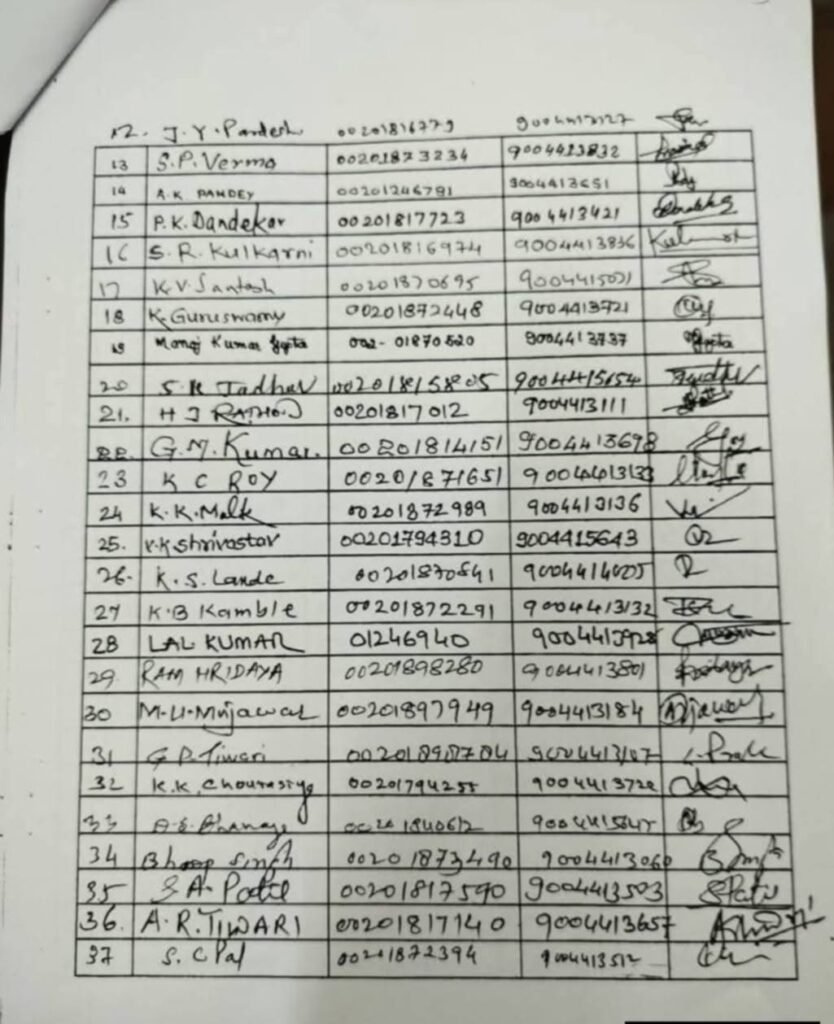 12. J. Y. Pandesh 00201816779 9004413127
13 S.P. Verma 00201873234 9004413832
14 A.K. PANDEY 00201246791 9004413651
15 P.K. Dandekar 00201817723 9004413421
16 S. R. Kulkarni 00201816974 9004413836
17 K.V. Santosh 00201870695
18 K. Guruswamy 00201872448 9004413721
19 Manoj Kumar Gupta 002-01870520 9004413737 Gupta
20 S K Jadhav 002018158805 9004415154
21. H J RATHOD 00201817012 9004413111
22. G. M. Kumar. 00201814151 9004413698
23 K C ROY 00201871651 9004413133
24 K. K. Malk 00201872989 9004413136
25. V. K Shrivastav 00201794310 9004415643
26. K. S. Lande 00201870541 9004414005
27 K. B Kamble 00201872291 9004413132
28 LAL KUMAR 01246940 9004413928
29. RAM HRIDAYA 00201898280 9004413801
30 M. U. Mujawar 00201897949 9004413184
31 G P. Tiwari
32 K. K. Chourasiya 00201794255 9004413722
33
34 Bhoop Singh 00201873490 9004413060
35 S A. Patil 00201817590 9004413503 SPatil
36. A. R. TIWARI 00201817140 9004413657
37 S. C Pal 00201872394 9004413512